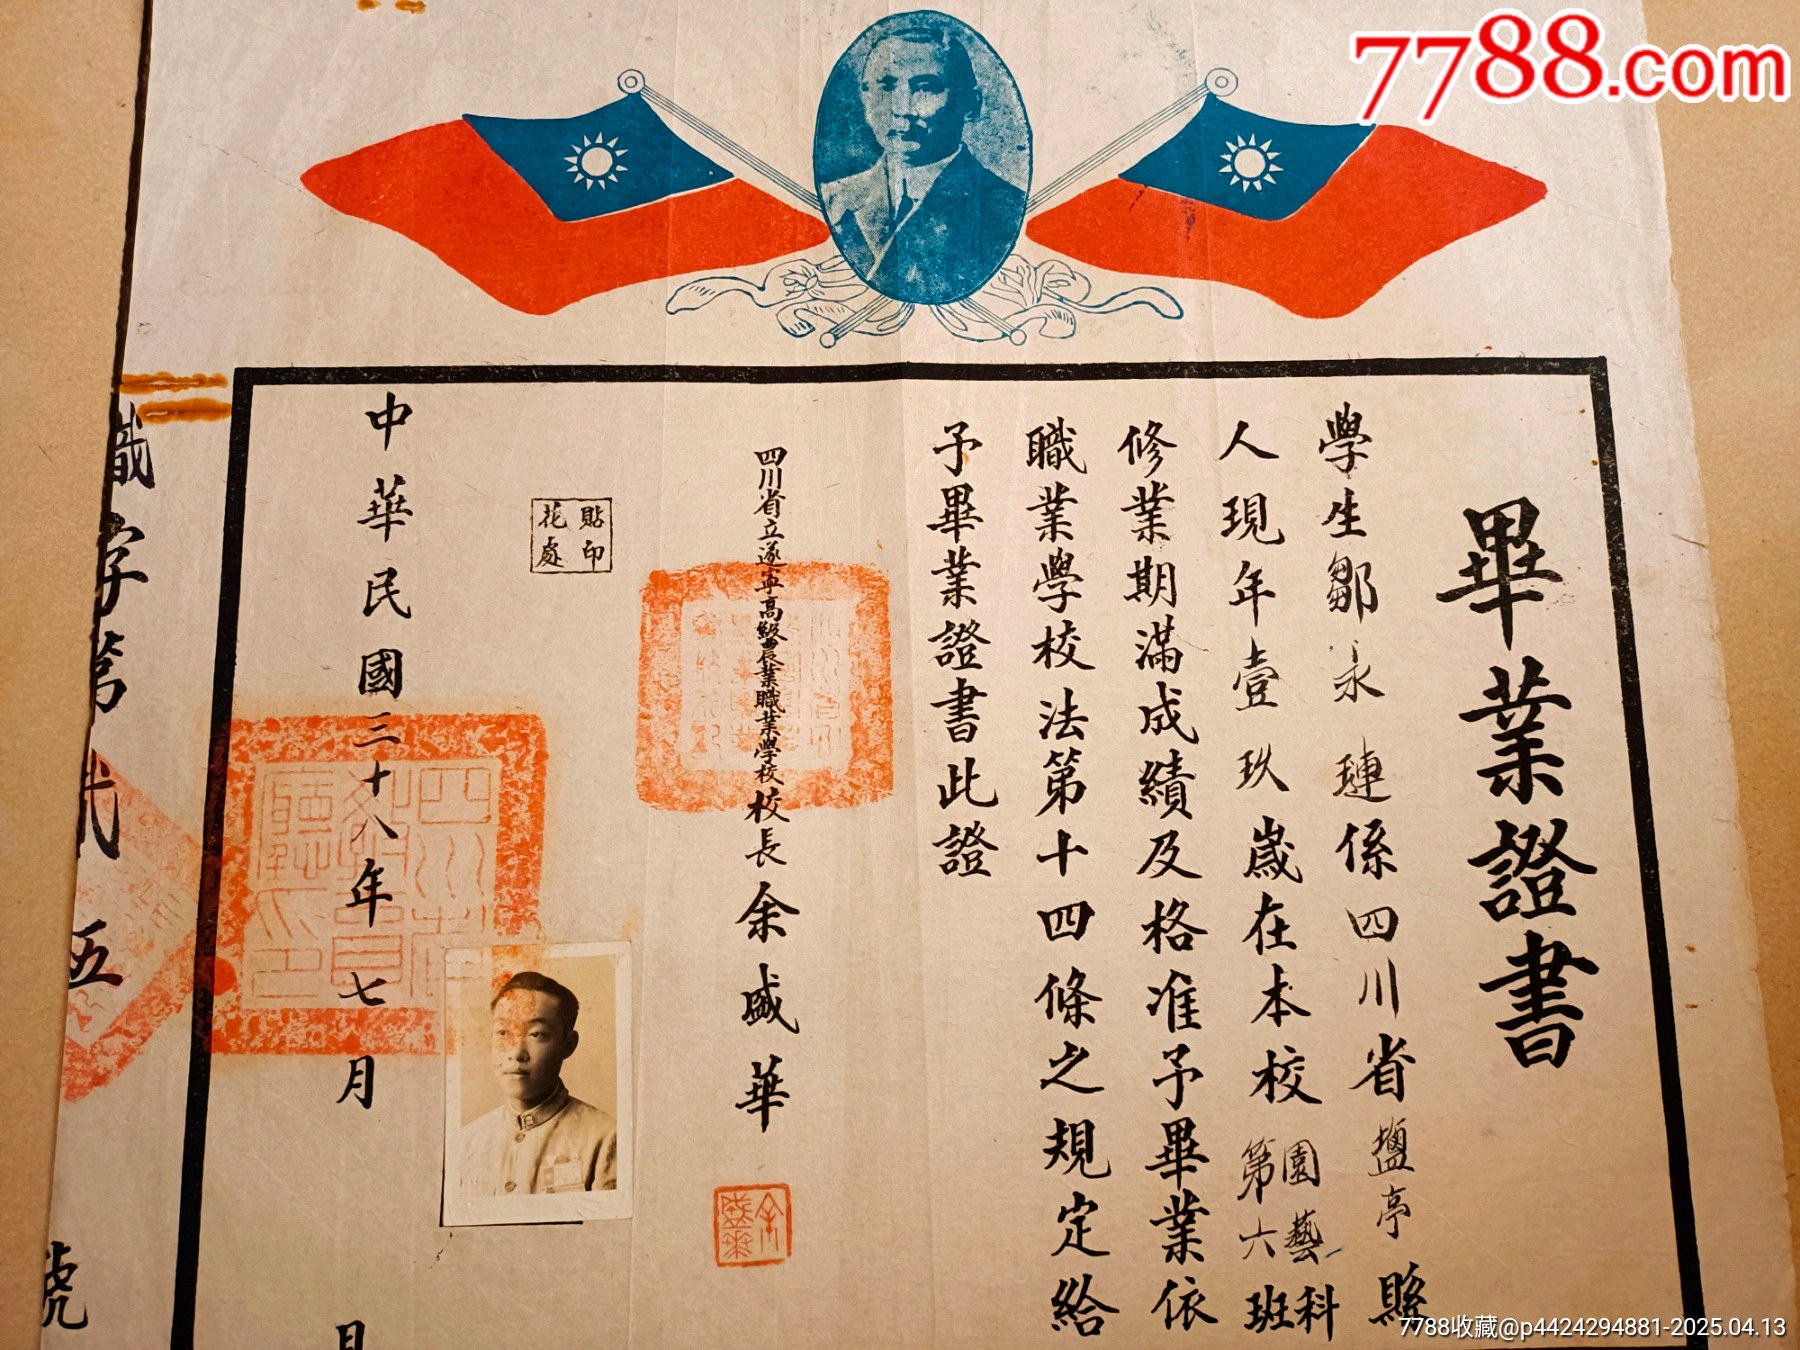 7788.com
畢業證書
學生鄒永璉係四川省鹽亭縣
人現年壹玖歲在本校園藝科第六班
修業期滿成績及格准予畢業依
職業學校法第十四條之規定給
予畢業證書此證
四川省立遂寧高級農業職業學校校長余盛華
貼印
花處
中華民國三十八年七月
日
職字第貳五號
四川省
教育
廳印
7788收藏@p4424294881-2025.04.13